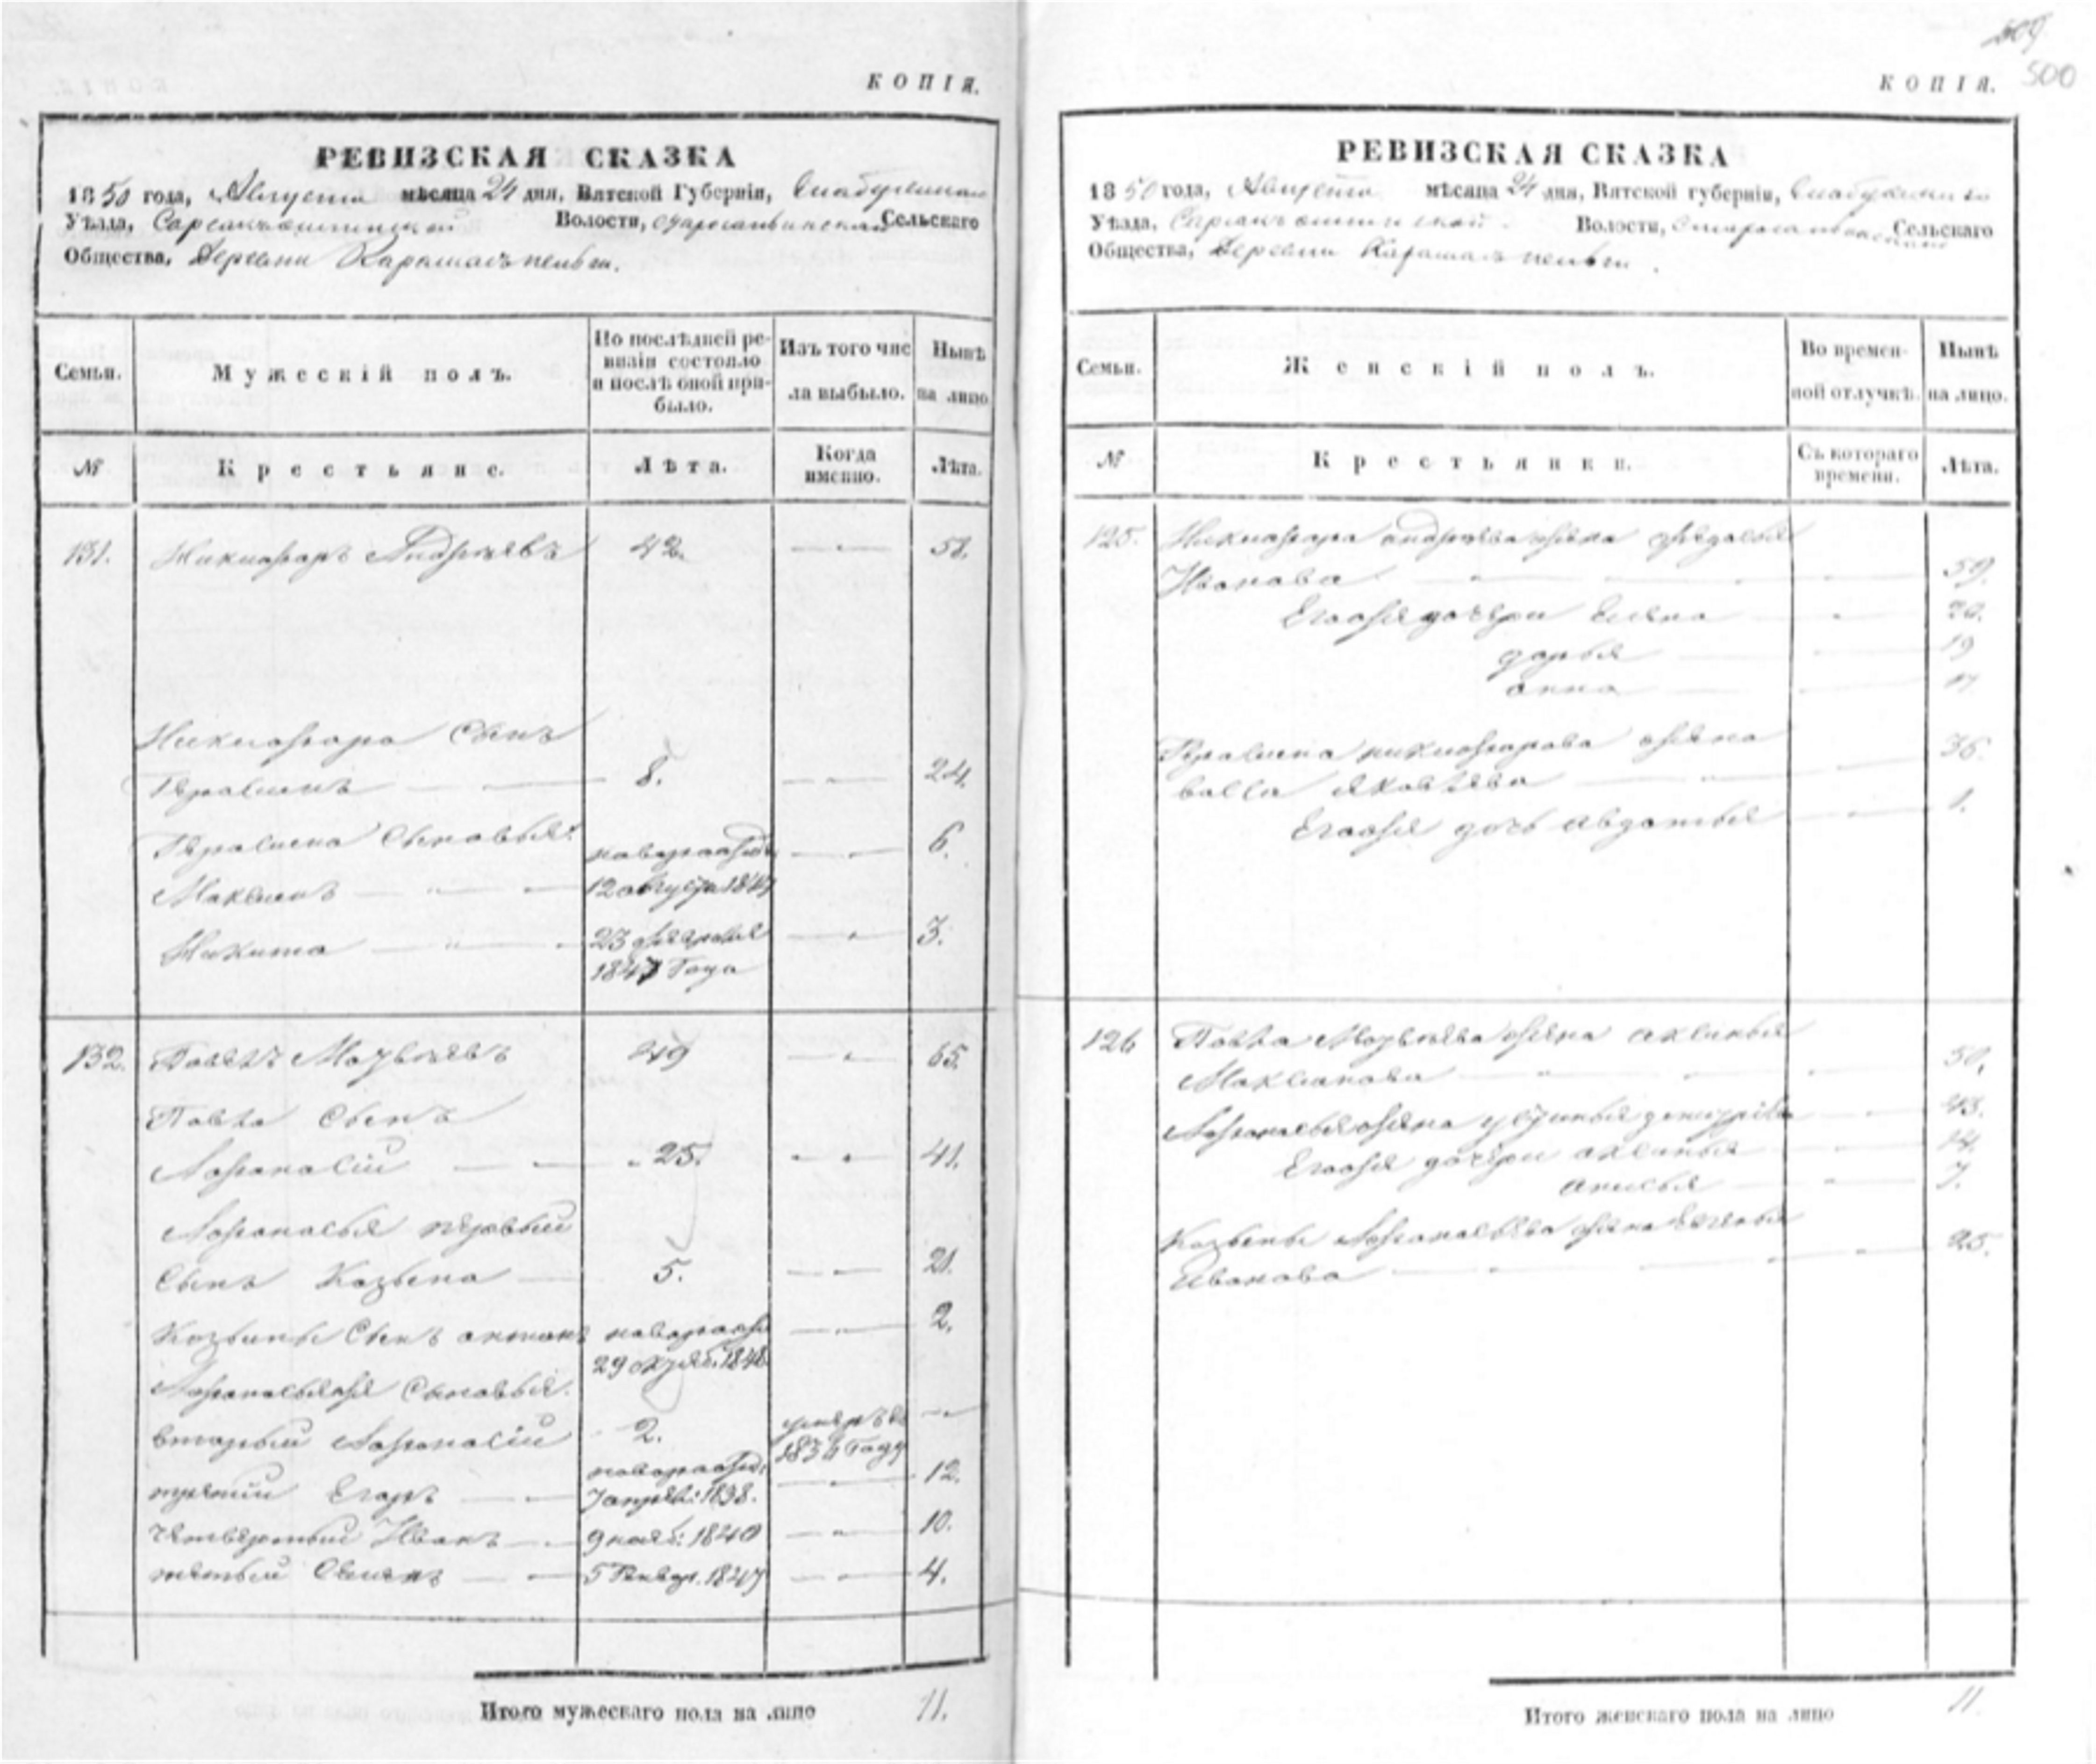 КОПІЯ.
РЕВИЗСКАЯ СКАЗКА
1850 года, Августа мѣсяца 24 дня, Вятской Губерніи, Елабужскаго
Уѣзда, Волости, Сельскаго
Общества, Деревни
Семьи.
Мужескій полъ.
По послѣдней ре-
визіи состояло
и послѣ оной при-
было.
Изъ того чис
ла выбыло.
Нынѣ
на лицо
№
Крестьяне.
Лѣта.
Когда
именно.
Лѣта.
131. Никифоръ Андреевъ 42.
Никифора Сынъ
Герасимъ 8. 24.
Герасима Сыновья: новорожд. 6.
Максимъ 12 августа
Никита 23 февраля 3.
1847 Года
132. Павелъ 49 65.
Павла Сынъ
Афонасій 25. 41.
Афонасья первый
Сынъ Козьма 5. 21.
Козьмы Сынъ антонъ новорожд 2.
29 1848
Афонасьяже Сыновья.
вторый Афонасій 2. умеръ въ
Году
третій Егоръ новорожд: 12.
7 апрел: 1838.
четвертый Иванъ 9 нояб: 1840 10.
пятый Семенъ 5 Генвар. 1847 4.
Итого мужескаго пола на лицо 11.
500
КОПІЯ.
РЕВИЗСКАЯ СКАЗКА
1850 года, Августа мѣсяца 24 дня, Вятской губерніи, Елабужскаго
Уѣзда, Волости, Сельскаго
Общества, Деревни
Семьи.
Женскій полъ.
Во времен-
ной отлучкѣ.
Нынѣ
на лицо.
№
Крестьянки.
Съ котораго
времени.
Лѣта.
125. Никифора андреева жена федосья
Иванова 59.
Егоже дочери Елена
дарья 19
анна
Герасима никифорова жена 36.
яковлева
Егоже дочь авдотья 1.
126 Павла жена аксинья
Максимова 50.
Афонасья жена устинья
Егоже дочери аксинья 14.
анисья 7.
Козьмы Афонасьева жена Евгенья
Иванова 25.
Итого женскаго пола на лицо 11